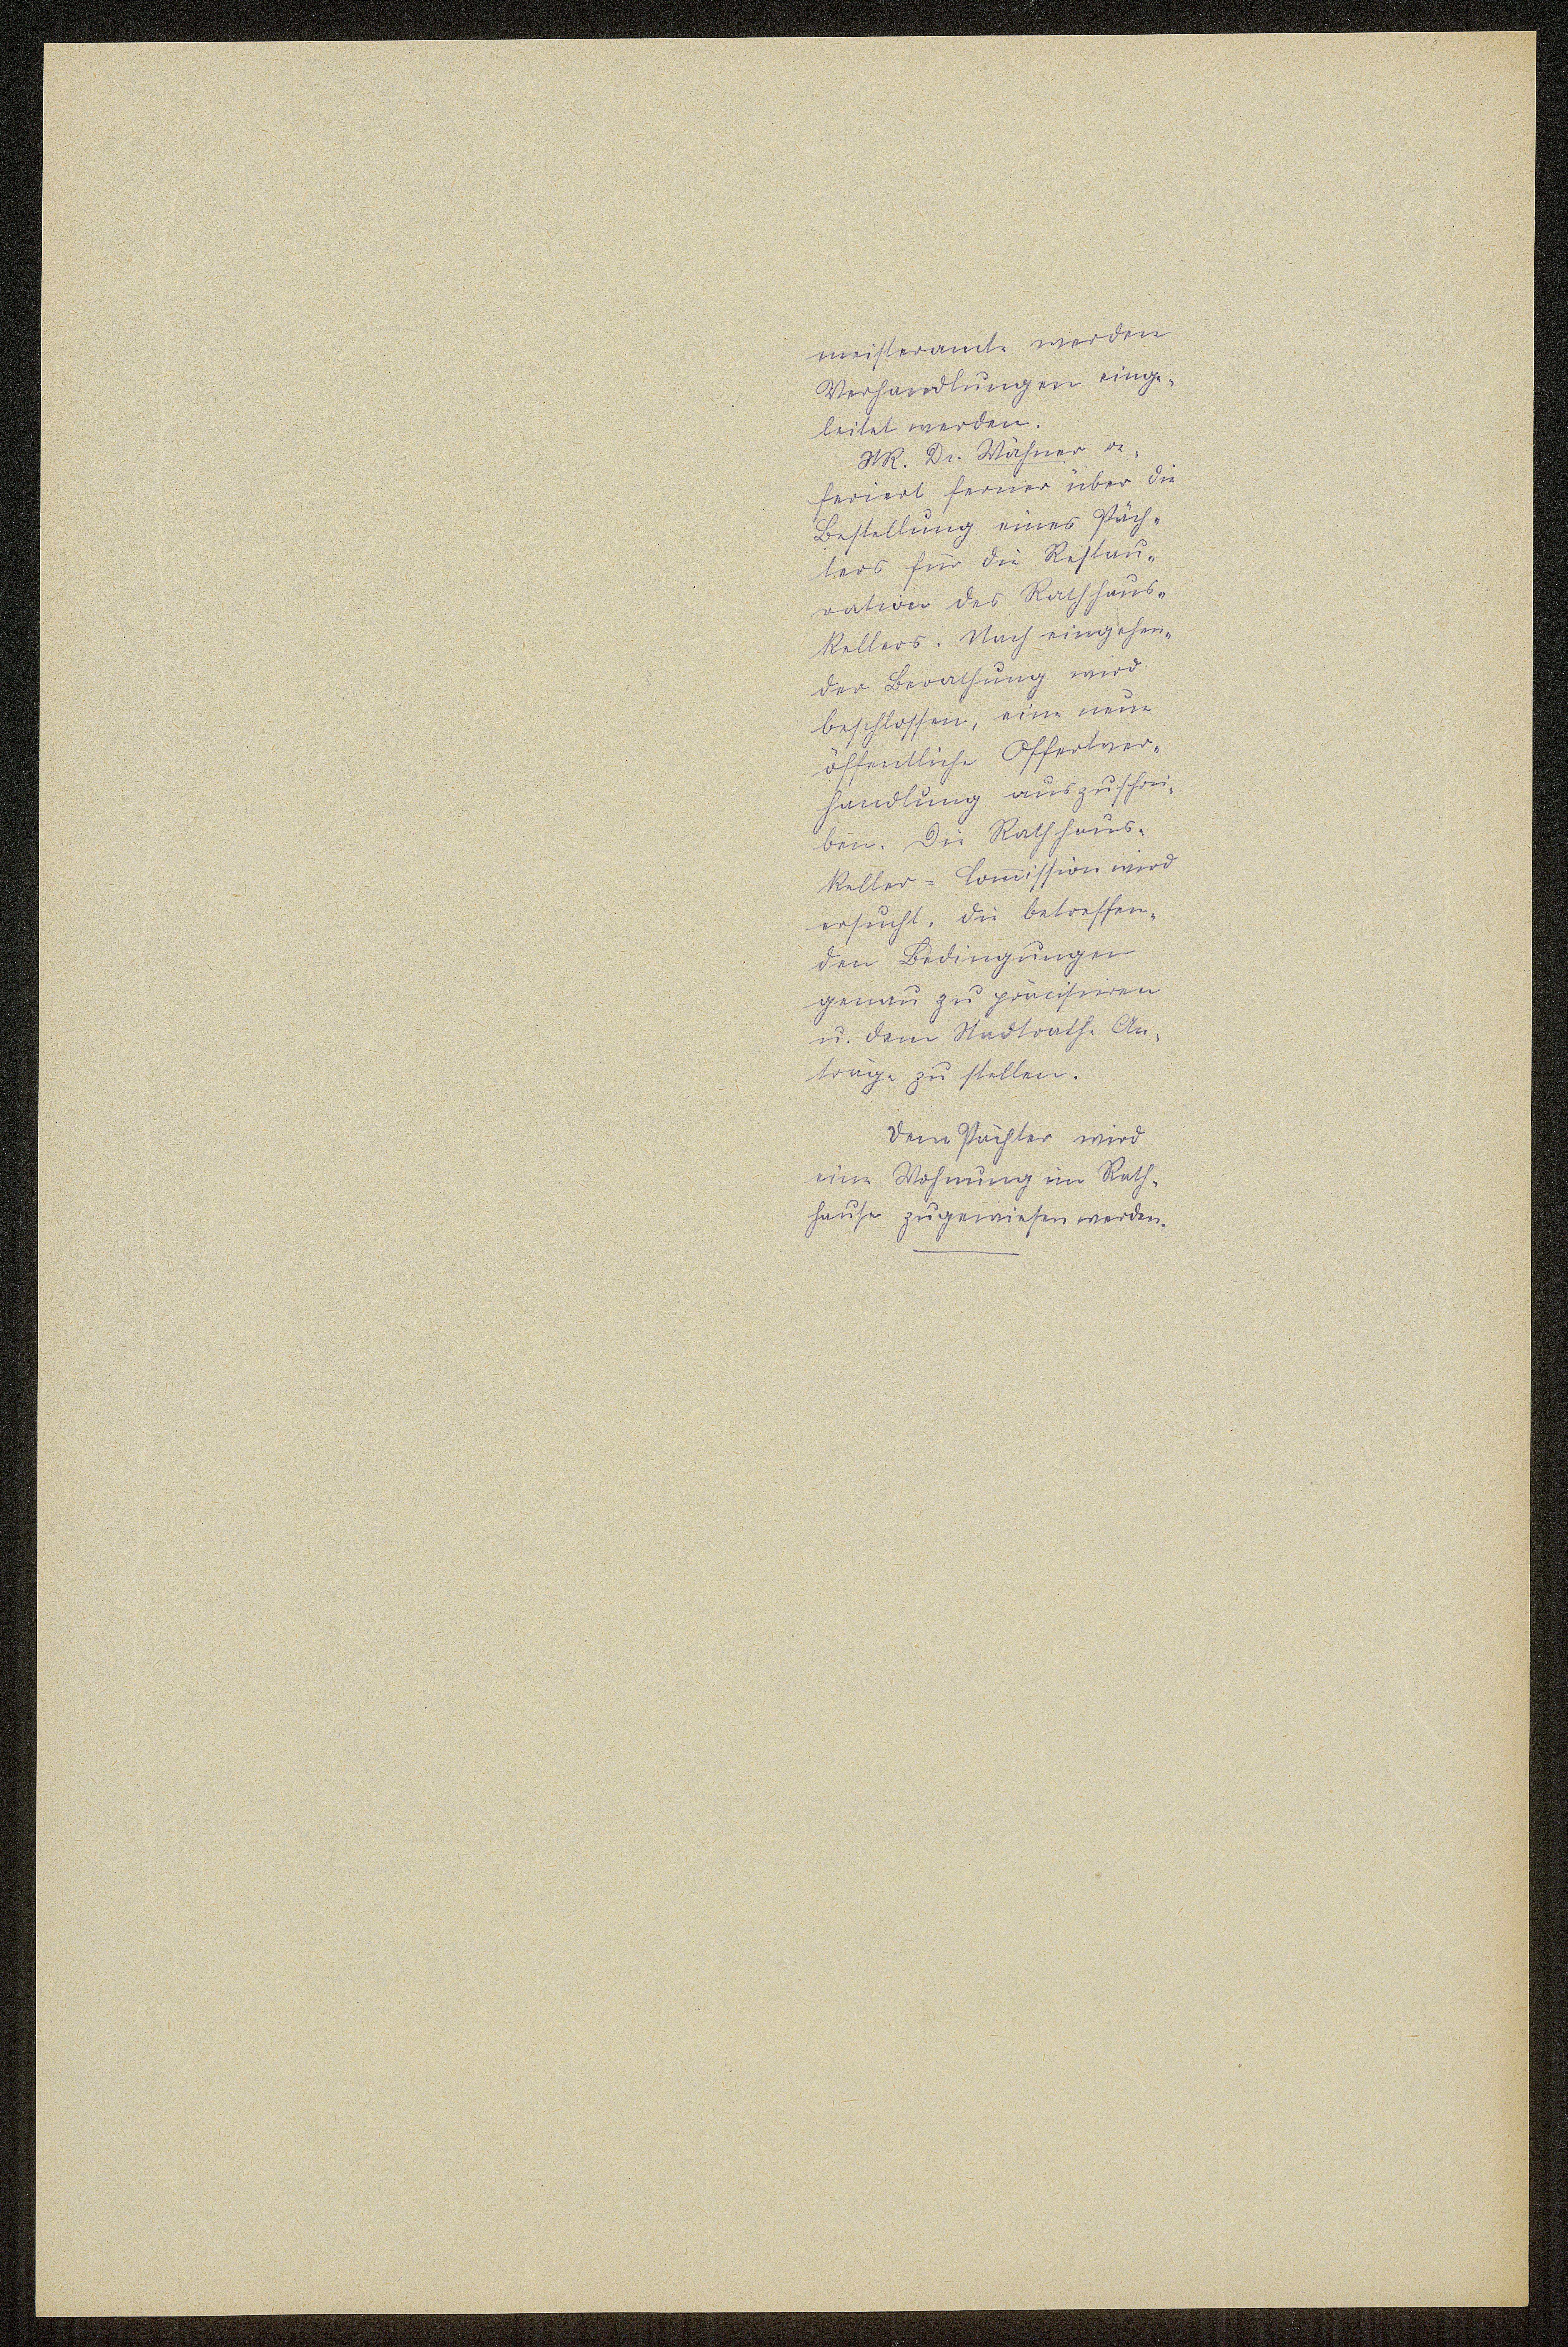 meisteramte werden
Verhandlungen einge-
leitet werden.
StR. Dr. Wähner re-
feriert ferner über die
Bestellung eines Päch-
ters für die Restau-
ration des Rathhaus-
kellers. Nach eingehen-
der Berathung wird
beschlossen, eine neue
öffentliche Offertver-
handlung auszuschrei-
ben. Die Rathhaus-
keller-Com̅ission wird
ersucht, die betreffen-
den Bedingungen
genau zu präcisieren
u. dem Stadtrathe An-
träge zu stellen.
Dem Pächter wird
eine Wohnung im Rath-
hause zugewiesen werden.